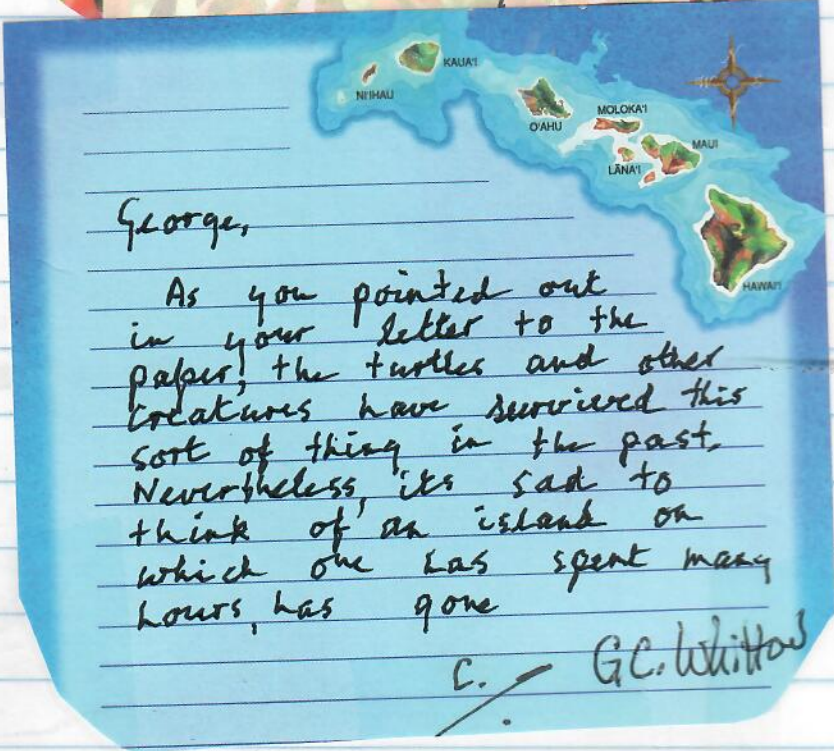 KAUA'I
NI'IHAU
O'AHU
MOLOKA'I
MAUI
LĀNA'I
HAWAI'I
George,
As you pointed out
in your letter to the
paper, the turtles and other
creatures have survived this
sort of thing in the past.
Nevertheless, its sad to
think of an island on
which one has spent many
hours, has gone
C.
G.C. Whittow